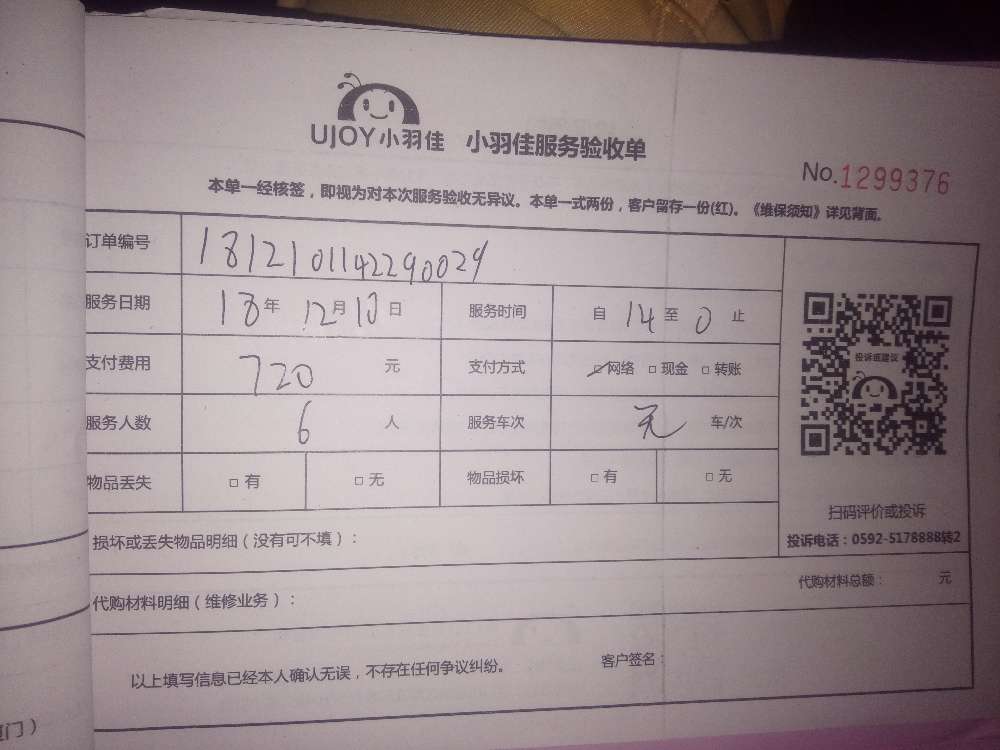 UJOY小羽佳 小羽佳服务验收单
No.1299376
本单一经核签，即视为对本次服务验收无异议。本单一式两份，客户留存一份(红)。《维保须知》详见背面。
订单编号 1812101142290029
服务日期 18年 12月 10日 服务时间 自 14 至 0 止
支付费用 720 元 支付方式 ☑网络 □现金 □转账
服务人数 6 人 服务车次 无 车/次
物品丢失 □有 □无 物品损坏 □有 □无
投诉或建议
扫码评价或投诉
投诉电话：0592-5178888转2
损坏或丢失物品明细（没有可不填）：
代购材料明细（维修业务）： 代购材料总额： 元
以上填写信息已经本人确认无误，不存在任何争议纠纷。 客户签名：
门）